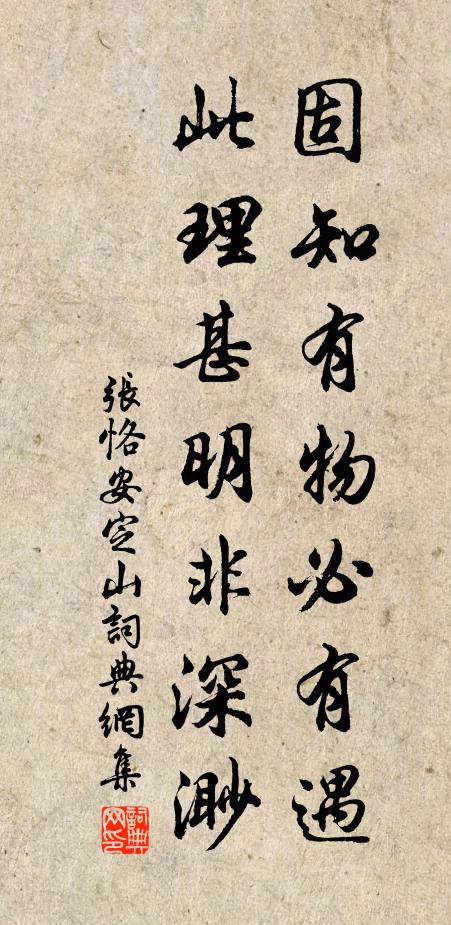 固知有物必有遇
此理甚明非深渺
張恪安定山詞典網集
詞典网印